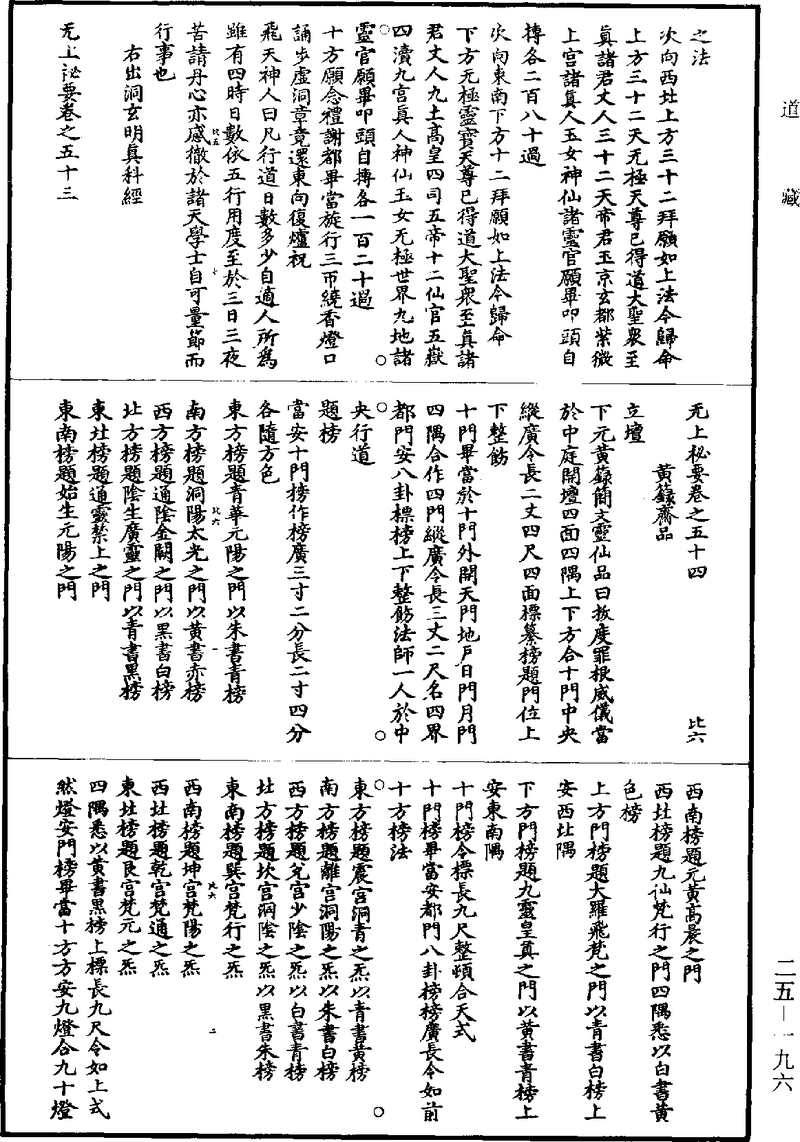 道藏
之法
次向西北上方三十二拜願如上法今歸命
上方三十二天无極天尊已得道大聖衆至
真諸君丈人三十二天帝君玉京玄都紫微
上宮諸真人玉女神仙諸靈官願畢叩頭自
搏各二百八十過
次向東南下方十二拜願如上法今歸命
下方无極靈寶天尊已得道大聖衆至真諸
君丈人九土高皇四司五帝十二仙官五嶽
四瀆九宮真人神仙玉女无極世界九地諸
靈官願畢叩頭自搏各一百二十過
十方願念禮謝都畢當旋行三帀繞香燈口
誦步虛洞章竟還東向復爐祝
飛天神人曰凡行道日數多少自適人所為
雖有四時日數依五行用度至於三日三夜
苦請丹心亦感徹於諸天學士自可量節而
行事也
右出洞玄明真科經
无上祕要卷之五十三
无上祕要卷之五十四
比六
黃籙齋品
立壇
下元黃籙簡文靈仙品曰拔度罪根威儀當
於中庭開壇四面四隅上下方合十門中央
縱廣令長二丈四尺四面標纂榜題門位上
下整飭
十門畢當於十門外開天門地戶日門月門
四隅合作四門縱廣令長三丈二尺名四界
都門安八卦標榜上下整飭法師一人於中
央行道
題榜
當安十門榜作榜廣三寸二分長二寸四分
各隨方色
東方榜題青華元陽之門以朱書青榜
南方榜題洞陽太光之門以黃書赤榜
西方榜題通陰金闕之門以黑書白榜
北方榜題陰生廣靈之門以青書黑榜
東北榜題通靈禁上之門
東南榜題始生元陽之門
西南榜題元黃高晨之門
西北榜題九仙梵行之門四隅悉以白書黃
色榜
上方門榜題大羅飛梵之門以青書白榜上
安西北隅
下方門榜題九靈皇真之門以黃書青榜上
安東南隅
十門榜令標長九尺整頓合天式
十門榜畢當安都門八卦榜榜廣長令如前
十方榜法
東方榜題震宮洞青之炁以青書黃榜
南方榜題離宮洞陽之炁以朱書白榜
西方榜題兌宮少陰之炁以白書青榜
北方榜題坎宮洞陰之炁以黑書朱榜
東南榜題巽宮梵行之炁
西南榜題坤宮梵陽之炁
西北榜題乾宮梵通之炁
東北榜題艮宮梵元之炁
四隅悉以黃書黑榜上標長九尺令如上式
然燈安門榜畢當十方方安九燈合九十燈
二五—一九六